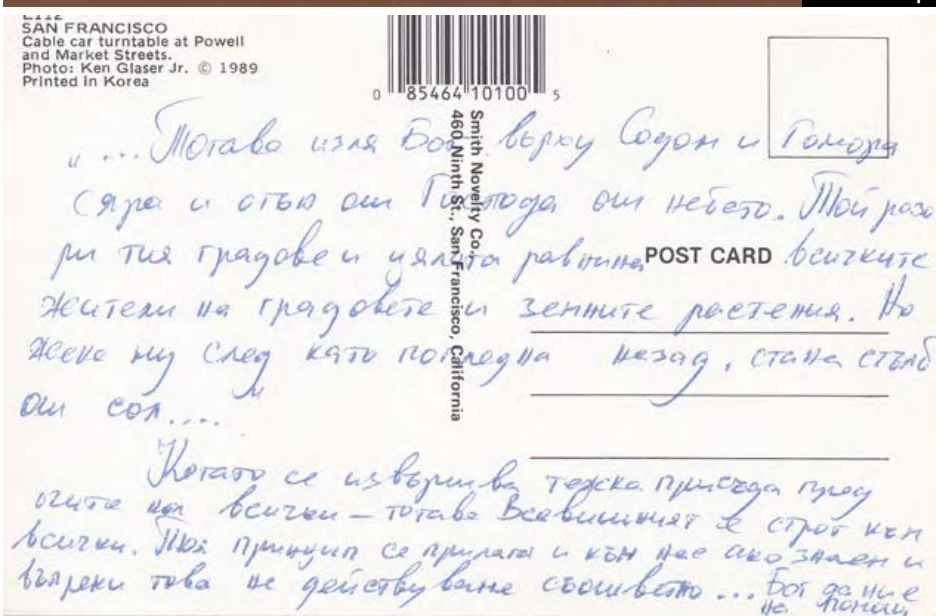 E112
SAN FRANCISCO
Cable car turntable at Powell
and Market Streets.
Photo: Ken Glaser Jr. © 1989
Printed in Korea
0 85464 10100 5
Smith Novelty Co.,
460 Ninth St., San Francisco, California
POST CARD
„... Тогава изля Бог върху Содом и Гомора
сяра и огън от Господа от небето. Той разо
ри тия градове и цялата равнина всичките
жители на градовете и земните растения. Но
жена му след като погледна назад, стана стълб
от сол...."
Когато се извършва тежска присъда пред
очите на всички – тогава Всевишният е строг към
всички. Тоя принцип се прилага и към нас ако знаем и
въпреки това не действуваме съответно... Бог да ни е
на помощ